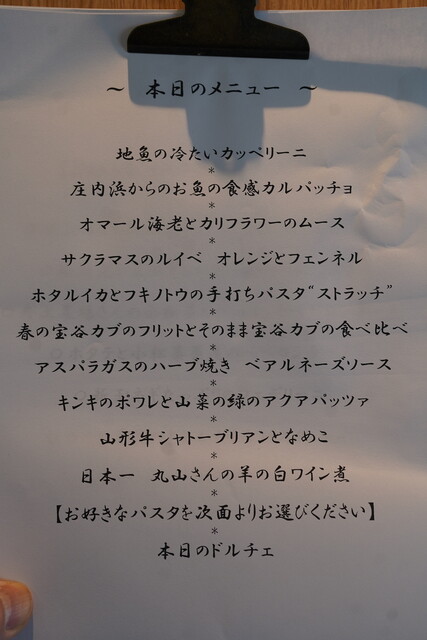 ～ 本日のメニュー ～
地魚の冷たいカッペリーニ
*
庄内浜からのお魚の食感カルパッチョ
*
オマール海老とカリフラワーのムース
*
サクラマスのルイベ オレンジとフェンネル
*
ホタルイカとフキノトウの手打ちパスタ“ストラッチ”
*
春の宝谷カブのフリットとそのまま宝谷カブの食べ比べ
*
アスパラガスのハーブ焼き ベアルネーズソース
*
キンキのポワレと山菜の緑のアクアパッツァ
*
山形牛シャトーブリアンとなめこ
*
日本一 丸山さんの羊の白ワイン煮
*
【お好きなパスタを次面よりお選びください】
*
本日のドルチェ